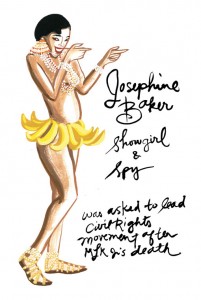 Josephine
Baker
Showgirl
&
Spy
was asked to lead
Civil Rights
movement after
MLK Jr's death